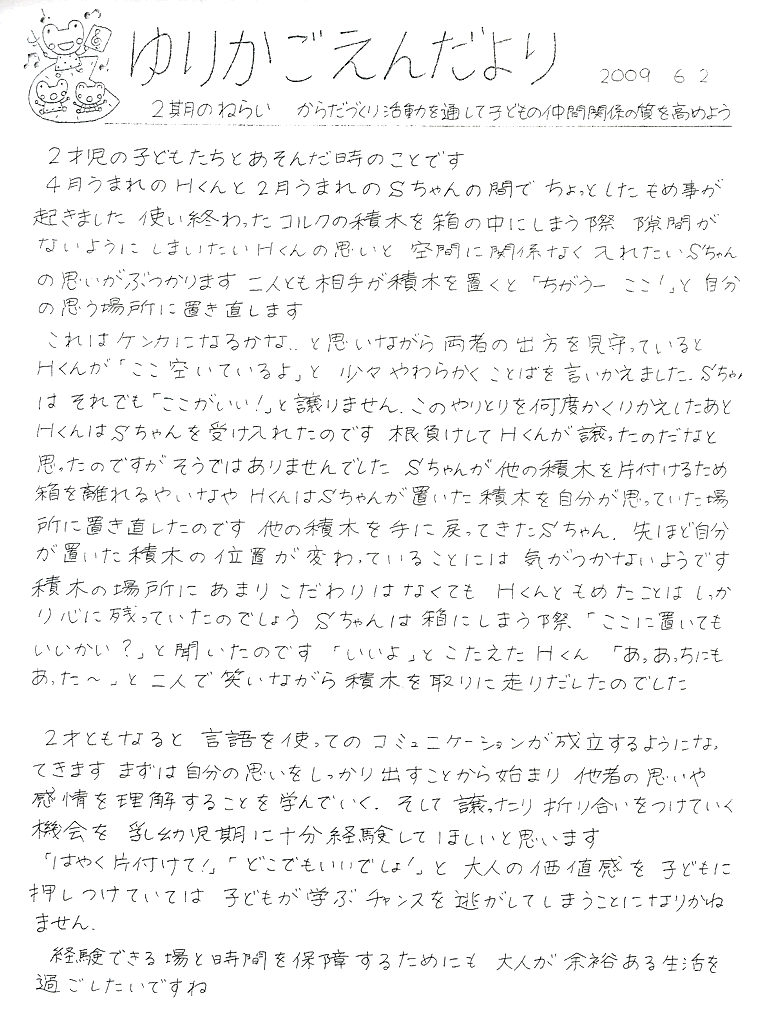 ゆりかごえんだより 2009 6 2
2期のねらい からだづくり活動を通して子どもの仲間関係の質を高めよう
2才児の子どもたちとあそんだ時のことです
4月うまれのHくんと2月うまれのSちゃんの間で ちょっとしたもめ事が
起きました 使い終わったコルクの積木を箱の中にしまう際 隙間が
ないように しまいたいHくんの思いと 空間に関係なく入れたいSちゃん
の思いがぶつかります 二人とも相手が積木を置くと「ちがうー ここ!」と自分
の思う場所に置き直します
これはケンカになるかな..と思いながら両者の出方を見守っていると
Hくんが「ここ空いているよ」と 少々やわらかくことばを言いかえました.Sちゃん
は それでも「ここがいい!」と譲りません.このやりとりを何度かくりかえしたあと
HくんはSちゃんを受け入れたのです 根負けしてHくんが譲ったのだなと
思ったのですがそうではありませんでした Sちゃんが他の積木を片付けるため
箱を離れるやいなや HくんはSちゃんが置いた積木を自分が思っていた場
所に置き直したのです 他の積木を手に戻ってきたSちゃん. 先ほど自分
が置いた積木の位置が変わっていることには 気がつかないようです
積木の場所に あまりこだわりはなくても Hくんともめたことはしっか
り心に残っていたのでしょう Sちゃんは箱にしまう際「ここに置いても
いいかい?」と聞いたのです「いいよ」とこたえたHくん 「あっ,あっちにも
あった〜」と二人で笑いながら積木を取りに走りだしたのでした
2才ともなると 言語を使ってのコミュニケーションが成立するようになっ
てきます まずは自分の思いをしっかり出すことから始まり 他者の思いや
感情を理解することを学んでいく. そして 譲ったり折り合いをつけていく
機会を 乳幼児期に十分経験してほしいと思います
「はやく片付けて!」「どこでもいいでしょ!」と 大人の価値感を子どもに
押しつけていては 子どもが学ぶチャンスを逃がしてしまうことになりかね
ません.
経験できる場と時間を保障するためにも 大人が余裕ある生活を
過ごしたいですね